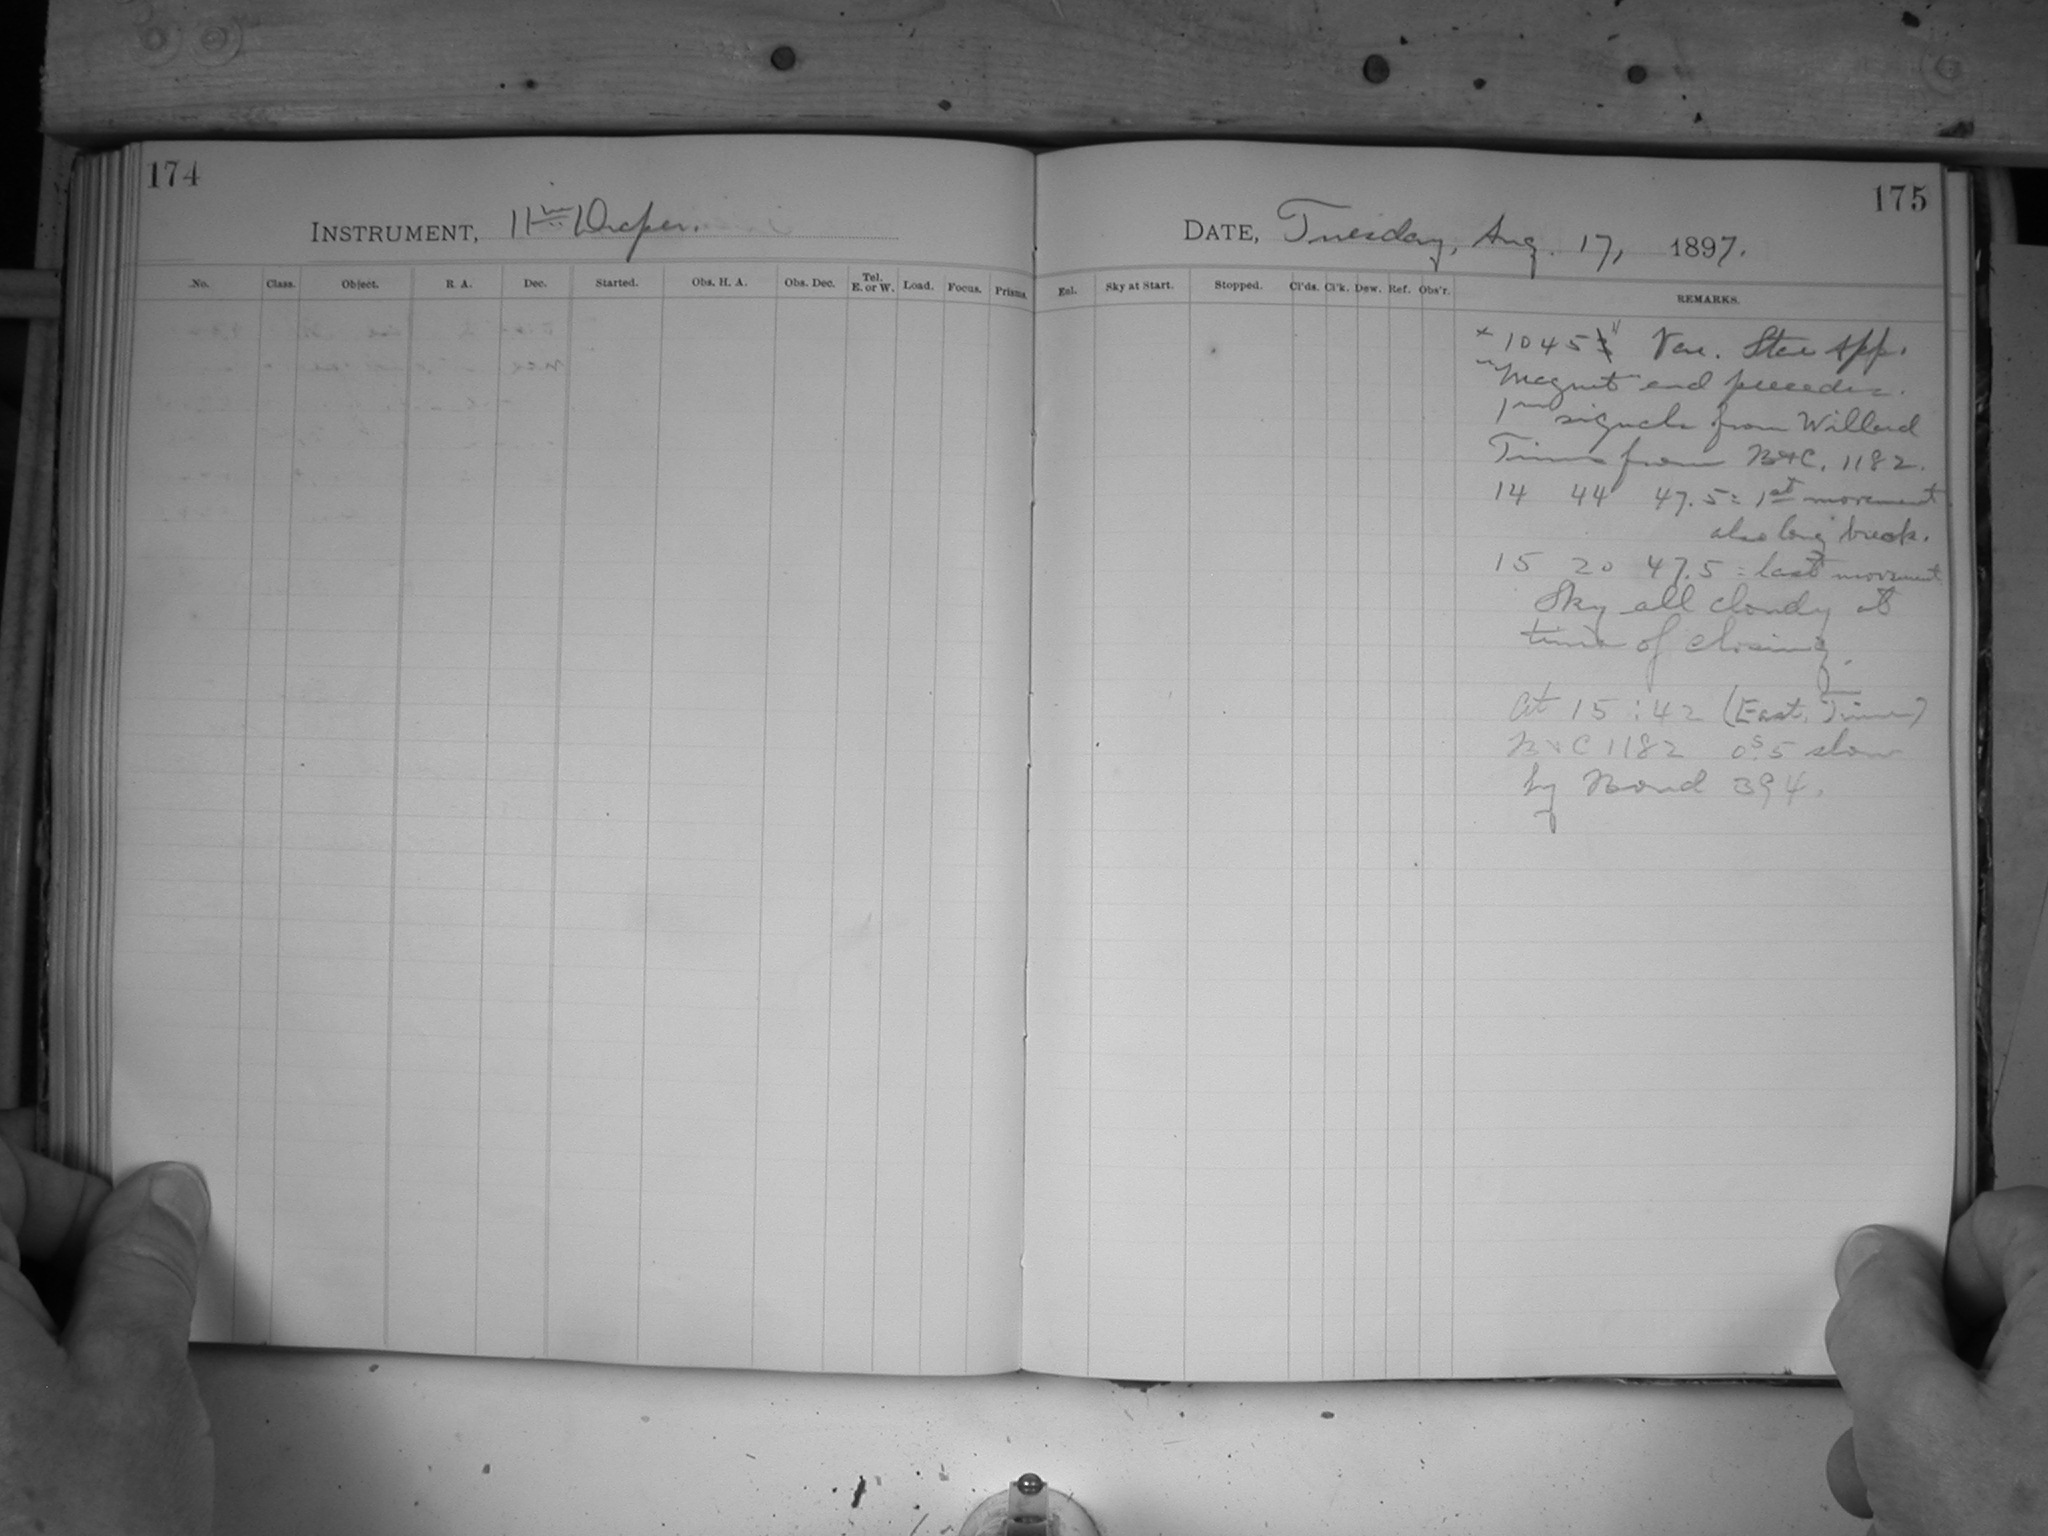 174
INSTRUMENT, 11 in Draper.
No. Class. Object. R. A. Dec. Started. Obs. H. A. Obs. Dec. Tel. E. or W. Load. Focus. Prisms.
175
DATE, Tuesday, Aug. 17, 1897.
Eal. Sky at Start. Stopped. Cl'ds. Cl'k. Dew. Ref. Obs'r. REMARKS.
x 1045 Var. Star App.
Magnet end precedes.
1m signals from Willard
Times from B&C. 1182.
14 44 47.5 = 1st movement
also long break.
15 20 47.5 = last movement
Sky all cloudy at
time of closing.
At 15:42 (East. Time)
B&C 1182 0s.5 slow
by Bond 394.